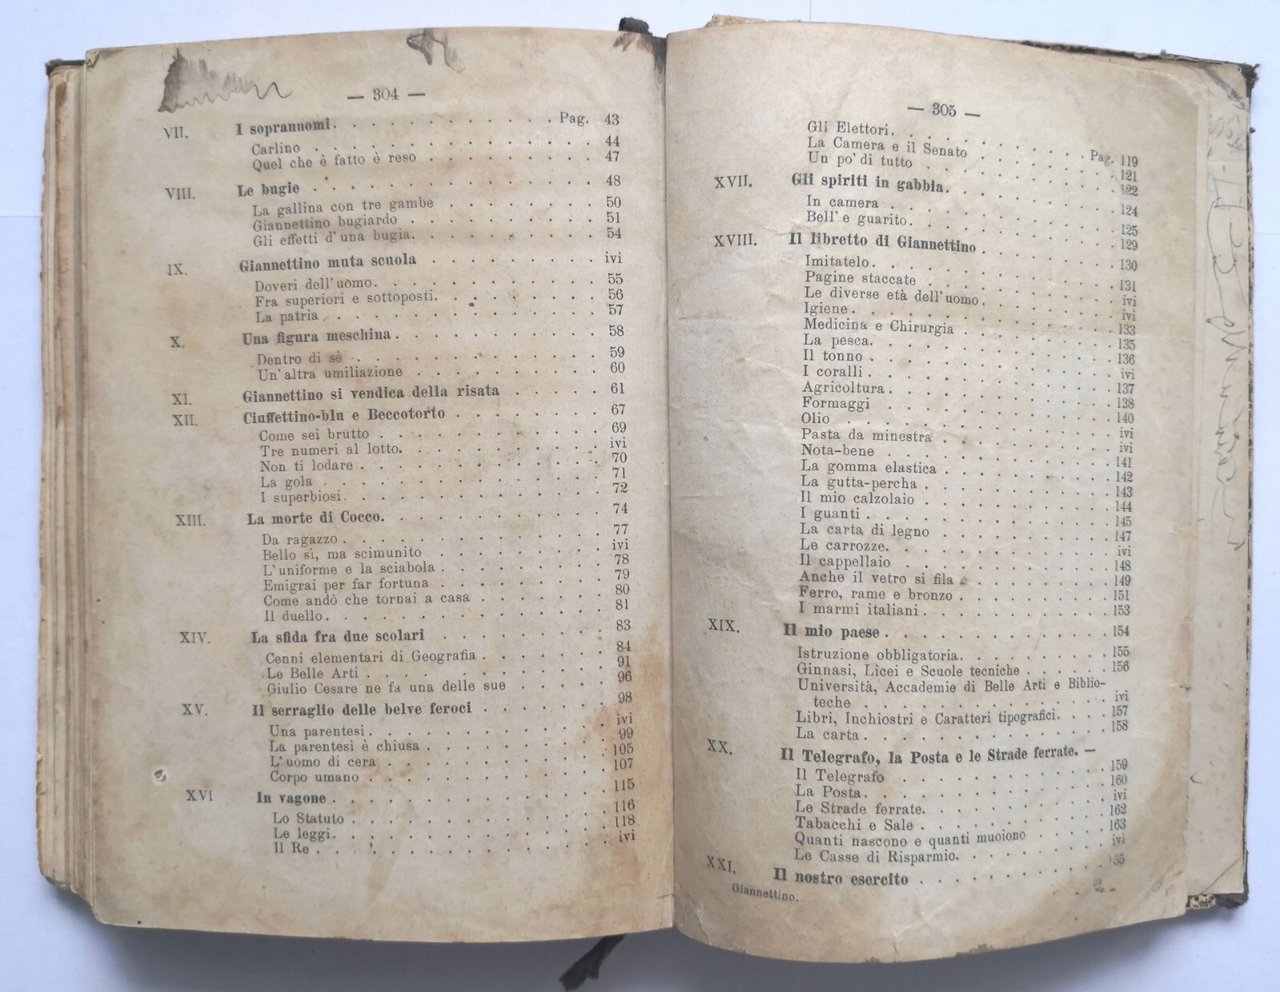 — 304 —
VII. I soprannomi. Pag. 43
Carlino 44
Quel che è fatto è reso 47
VIII. Le bugie 48
La gallina con tre gambe 50
Giannettino bugiardo 51
Gli effetti d'una bugia. 54
IX. Giannettino muta scuola ivi
Doveri dell'uomo. 55
Fra superiori e sottoposti. 56
La patria 57
X. Una figura meschina. 58
Dentro di sè 59
Un'altra umiliazione 60
XI. Giannettino si vendica della risata 61
XII. Ciuffettino-blu e Beccotorto 67
Come sei brutto 69
Tre numeri al lotto. ivi
Non ti lodare 70
La gola 71
I superbiosi. 72
XIII. La morte di Cocco. 74
Da ragazzo 77
Bello sì, ma scimunito ivi
L'uniforme e la sciabola 78
Emigrai per far fortuna 79
Come andò che tornai a casa 80
Il duello. 81
XIV. La sfida fra due scolari 83
Cenni elementari di Geografia 84
Le Belle Arti 91
Giulio Cesare ne fa una delle sue 96
XV. Il serraglio delle belve feroci 98
Una parentesi. ivi
La parentesi è chiusa 99
L'uomo di cera 105
Corpo umano 107
XVI In vagone 115
Lo Statuto 116
Le leggi. 118
Il Re ivi
— 305 —
Gli Elettori. Pag. 119
La Camera e il Senato 121
Un po' di tutto 122
XVII. Gli spiriti in gabbia. 124
In camera 125
Bell'e guarito. 129
XVIII. Il libretto di Giannettino 130
Imitatelo. 131
Pagine staccate ivi
Le diverse età dell'uomo. ivi
Igiene. 133
Medicina e Chirurgia 135
La pesca. 136
Il tonno ivi
I coralli 137
Agricoltura. 138
Formaggi 140
Olio ivi
Pasta da minestra ivi
Nota-bene 141
La gomma elastica 142
La gutta-percha 143
Il mio calzolaio 144
I guanti 145
La carta di legno 147
Le carrozze. ivi
Il cappellaio 148
Anche il vetro si fila 149
Ferro, rame e bronzo 151
I marmi italiani 153
XIX. Il mio paese 154
Istruzione obbligatoria. 155
Ginnasi, Licei e Scuole tecniche 156
Università, Accademie di Belle Arti e Biblio-
teche ivi
Libri, Inchiostri e Caratteri tipografici. 157
La carta. 158
XX. Il Telegrafo, la Posta e le Strade ferrate. — 159
Il Telegrafo 160
La Posta. ivi
Le Strade ferrate. 162
Tabacchi e Sale 163
Quanti nascono e quanti muoiono ivi
Le Casse di Risparmio.
XXI. Il nostro esercito
Giannettino.